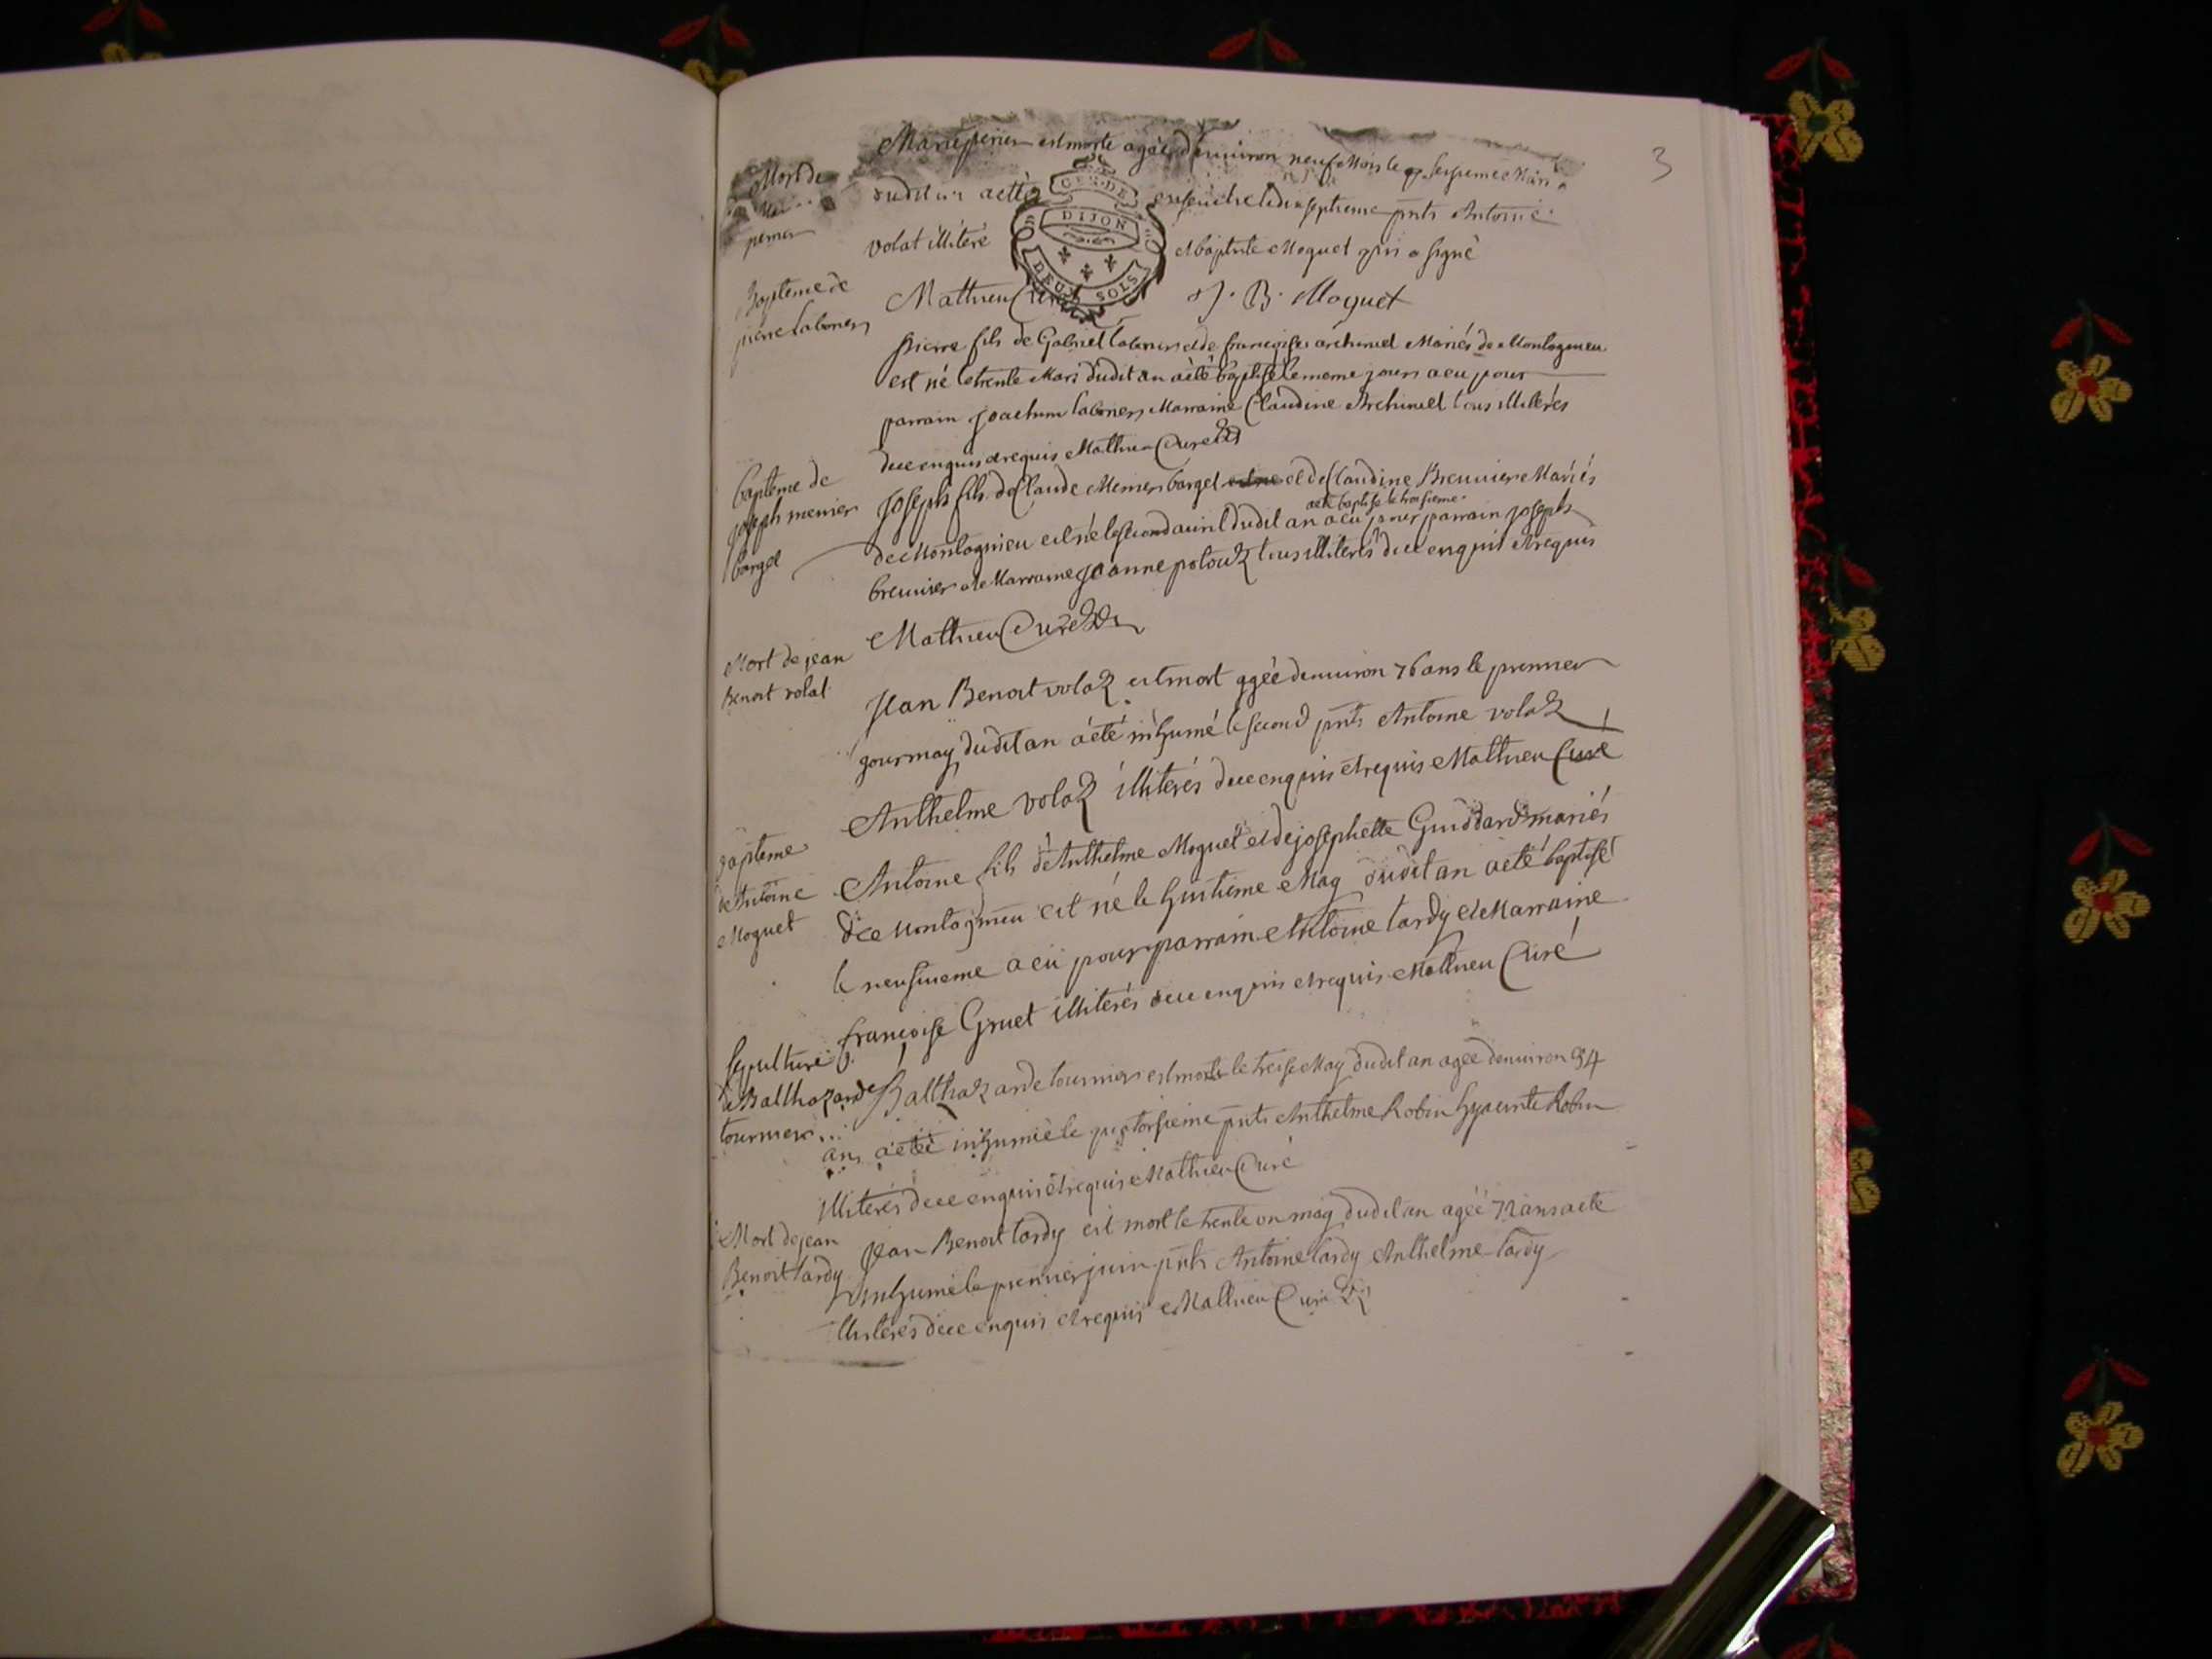 3
Mort de
perrier
Marie perrier est morte agée d'environ neuf Mois le Mars
dudit an a etté ensevelie le dixseptieme pnts Antoine
volat illiteré et baptiste Moguet qui a signé
GEN. DE
DIJON
DEUX SOLS
Mathieu Curé J. B. Moguet
Bapteme de
pierre Laboriers
pierre fils de Gabriel Laboriers et de françoise archimel Mariés de Montagnieu
est né le trente Mars dudit an a eté baptisé le meme jours a eu pour
parrain joachim Laboriers Marraine Claudine Archimel tous illiterés
de ce enquis et requis Mathieu Curé
bapteme de
joseph menier
barget
joseph fils de Claude Menier barget et de Claudine Breuvier Mariés
a eté baptisé le troisieme
de Montagnieu est né le second avril dudit an a eu pour parrain joseph
breuvier et Marraine jeanne polouz tous illiterés de ce enquis et requis
Mathieu Curé
Mort de jean
Benoit volat
Jean Benoit volaz est mort agée d'environ 76 ans le premier
jour may dudit an a eté inhumé le second pnts Antoine volaz
Anthelme volaz illiterés de ce enquis et requis Mathieu Curé
Bapteme
de Antoine
Moguet
Antoine fils de Anthelme Moguet et de josephette Guiddard mariés
de Montagnieu est né le huitieme May dudit an a eté baptisé
le neufvieme a eu pour parrain Antoine tardy et Marraine
françoise Gruet illiterés de ce enquis et requis Mathieu Curé
sepulture
de Balthazarde
tournier
Balthazarde tournier est morte le treise May dudit an agée d'environ 94
ans a eté inhumée le quatorsieme pnts Anthelme Robin hyacinte Robin
illiterés de ce enquis et requis Mathieu Curé
Mort de jean
Benoit tardy
Jean Benoit tardy est mort le trente un may dudit an agéé 72 ans a eté
inhumé le premier juin pnts Antoine tardy Anthelme tardy
illiterés de ce enquis et requis Mathieu Curé